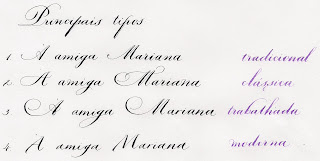 Principais tipos
1 A amiga Mariana tradicional
2 A amiga Mariana clássica
3 A amiga Mariana trabalhada
4 A amiga Mariana moderna